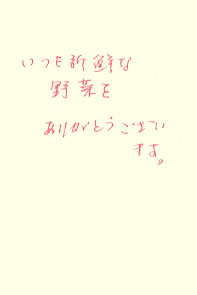 いつも新鮮な
野菜を
ありがとうござい
ます。